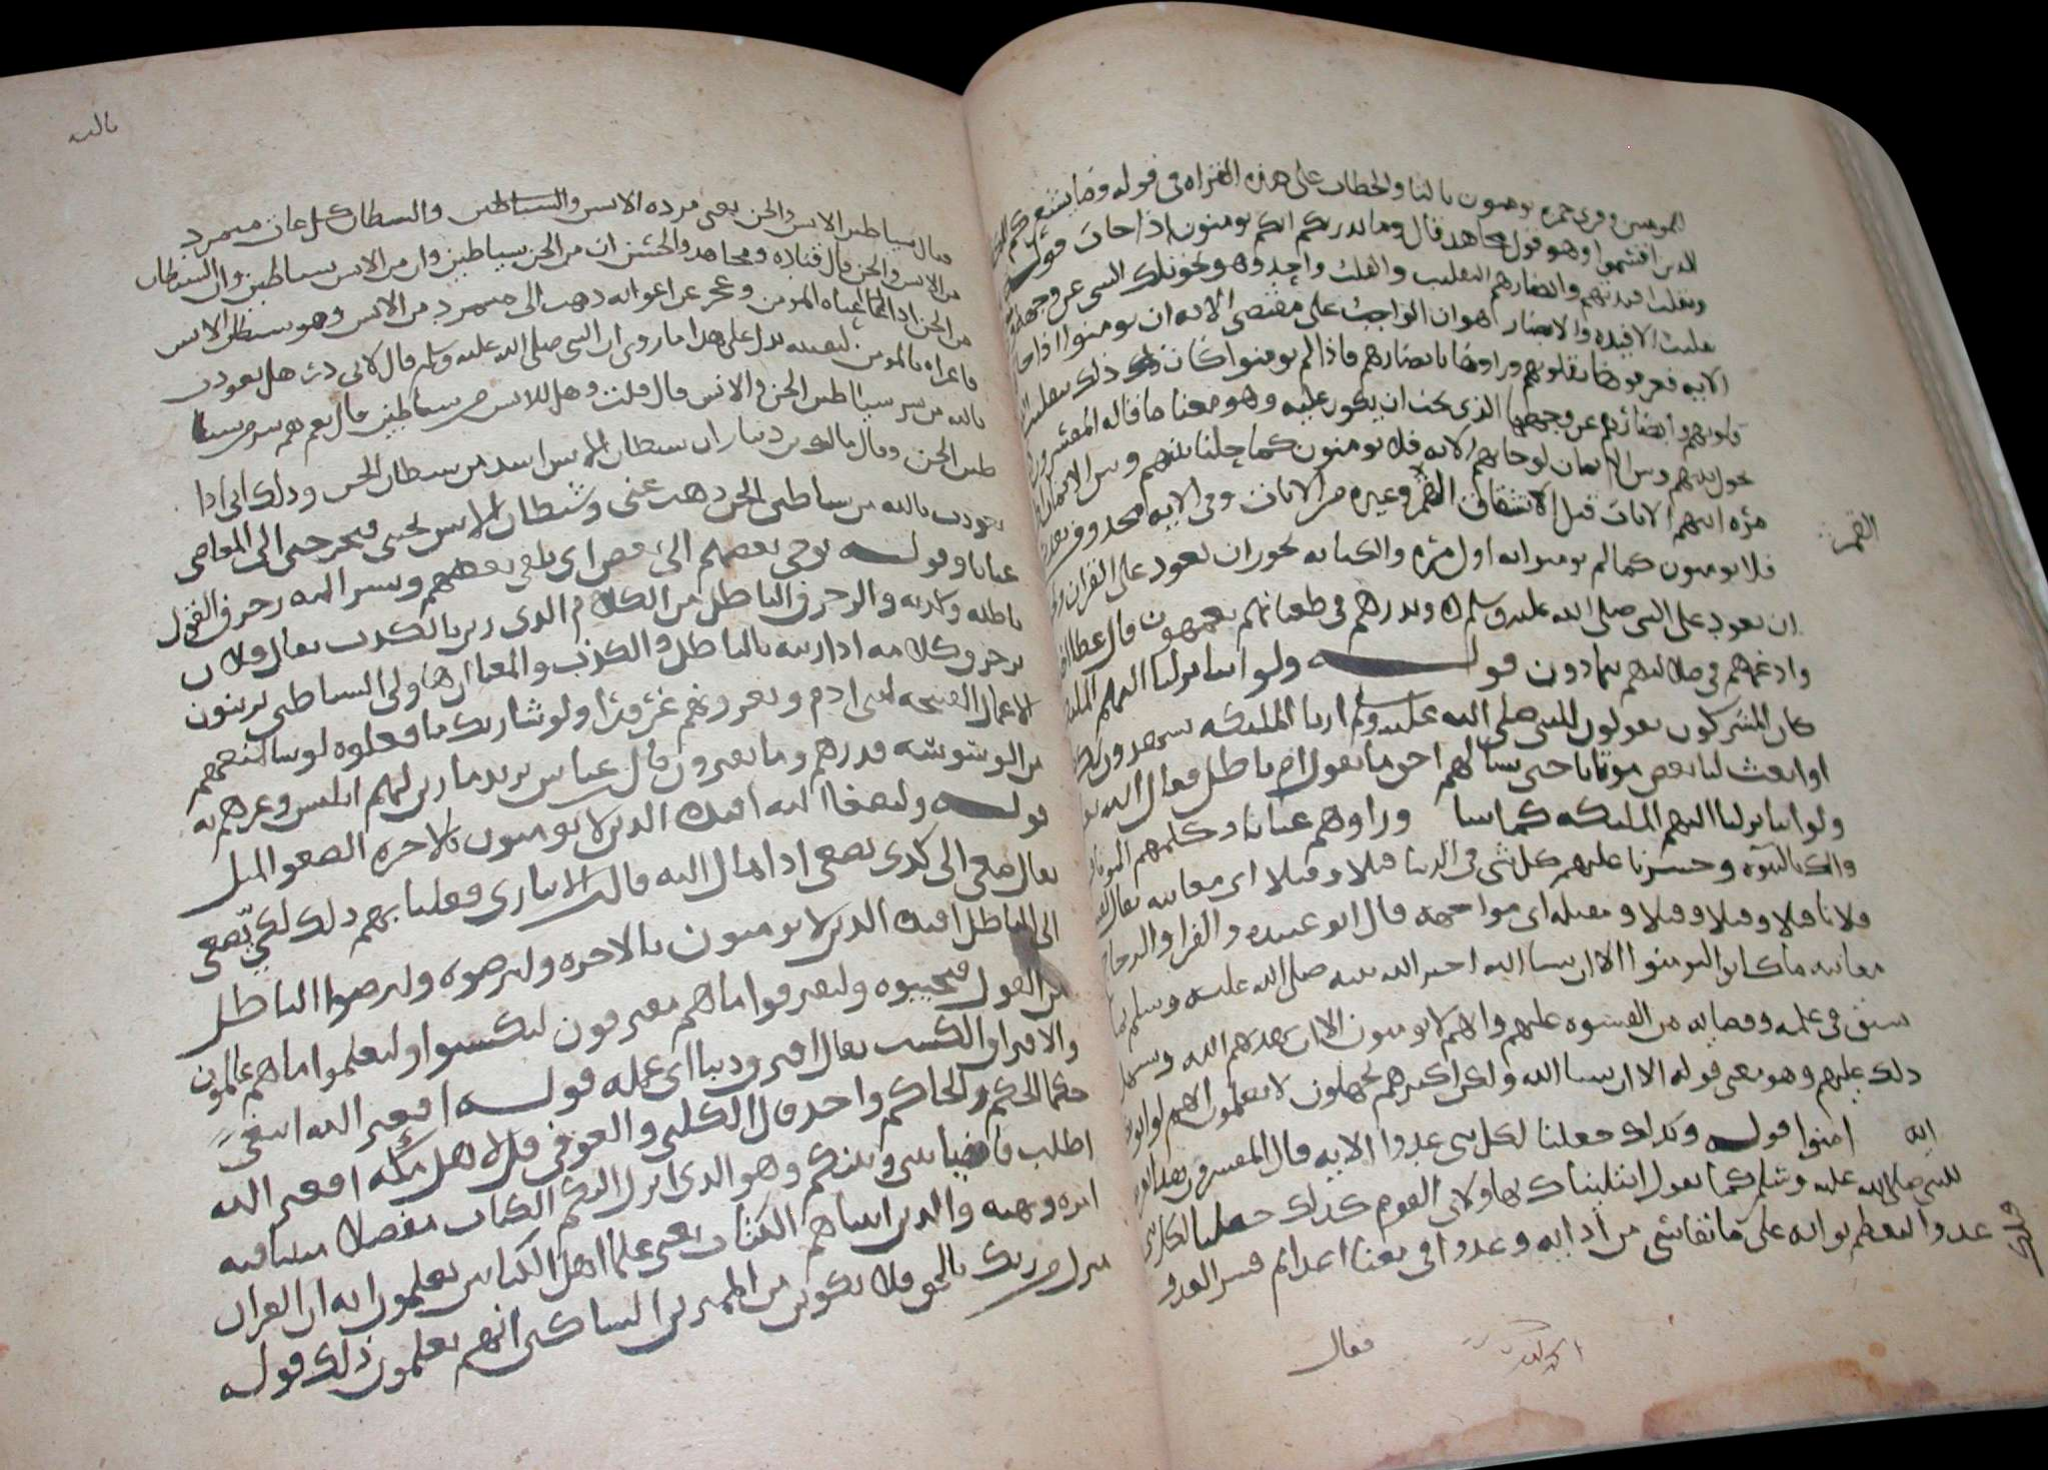 المومنين وقرى حمزه تومنون بالتا والخطاب على هذه القراه فى قوله وما يشعركم
للذين اقسموا وهو قول مجاهد قال وما يدريكم انكم تومنون اذا جات قوله
ونقلب افيدتهم وابصارهم التقليب والقلب واحد وهو تحويلك الشى عن وجهه
تقليب الافيده والابصار هو ان الواجب على مقتضى الايه ان يومنوا اذا
الايه فعرفوها بقلوبهم وراوها بابصارهم فاذا لم يومنوا كان ذلك تقليب
قلوبهم وابصارهم عن وجهها الذى يجب ان يكون عليه وهو معنا ما قاله المفسرون
نحول بينهم وبين الايمان لو جاتهم الايه فلا يومنون كما حلنا بينهم وبين الايمان
مره اتتهم الايات قبل لانشقاق القمر وغيره من الايات وفى الايه محذوف
القمر
فلا يومنون كما لم يومنوا به اول مره والكنايه يجوز ان تعود على القران
ان تعود على النبى صلى الله عليه وسلم ونذرهم فى طغيانهم يعمهون قال عطا
وادعهم فى ضلالتهم يتمادون قوله ولو اننا نزلنا اليهم
كان المشركون يقولون للنبى صلى الله عليه وسلم ارنا المليكه يشهدون
او ابعث لنا بعض موتانا حتى نسالهم احق ما تقول ام باطل فقال الله
ولو اننا نزلنا اليهم المليكه كما سالوا وراوهم عيانا وكلمهم الموتى
بالنبوه وحشرنا عليهم كل شى فى الدنيا قبلا وقبلا اى معاينه يقال
فلانا قبلا وقبلا وقبلا ومقبله اى مواجهه قال ابو عبيده والفرا والزجاج
معاينه ما كانوا ليومنوا الا ان يشا الله اخبر الله نبيه صلى الله عليه وسلم
سبق فى علمه وقضايه من الشقوه عليهم وانهم لا يومنون الا ان يهديهم الله
ذلك عليهم وهو معنى قوله الا ان يشا الله ولكن اكثرهم يجهلون لا يعلمون انهم لو
امنوا قوله وكذلك جعلنا لكل نبى عدوا الايه قال المفسرون
للنبى صلى الله عليه وسلم كما نقول ابتليناك بهاولاى القوم كذلك جعلنا لكل
عدوا ليعظم ثوابه على ما يقاسى من اذايه وعدوا فى معنا اعدا ثم فسر العدو
فقال
فقال شياطين الانس والجن يعنى مرده الانس والشياطين والشيطان كل عات متمرد
من الانس والجن قال قتاده ومجاهد والحسن ان من الجن شياطين وان من الانس شياطين وان الشيطان
من الجن اذا اعياه المومن وعجز عن اغوايه ذهب الى متمرد من الانس وهو شيطان الانس
فاغراه بالمومن ليفتنه يدل على هذا ما روى ان النبى صلى الله عليه وسلم قال لابى ذر هل تعوذت
بالله من شر شياطين الجن والانس قال قلت وهل للانس من شياطين قال نعم هم شر من شيا
طين الجن وقال مالك بن دينار ان شيطان الانس اشد من شيطان الجن وذلك انى اذا
تعوذت بالله من شياطين الجن ذهب عنى وشيطان الانس يجينى فيجرنى الى المعاصى
عيانا وقوله يوحى بعضهم الى بعض اى يلقى بعضهم ويسر اليه زخرف القول
باطله وكذبه والزخرف الباطل من الكلام الذى زين بالكذب يقال فلان
يزخرف كلامه اذا زينه بالباطل والكذب والمعنا ان هاولى الشياطين يزينون
الاعمال القبيحه لبنى ادم ويغرونهم غرورا ولو شا ربك ما فعلوه لو شا لمنعهم
من الوسوسه فذرهم وما يفترون قال عباس يريد ما زين لهم ابليس وغرهم به
قوله ولتصغا اليه افيده الذين لا يومنون بالاخره الصغو الميل
يقال صغى الى كذى يصغى اذا مال اليه قال ابن الانبارى فعلنا بهم ذلك لكى تصغى
الى الباطل افيده الذين لا يومنون بالاخره وليرضوه وليرضوا الباطل
من القول ويحبوه وليقترفوا ما هم مقترفون ليكتسبوا وليعملوا ما هم عاملون
والاقتراف الكسب يقال اقترف ذنبا اى عمله قوله افغير الله ابتغى
حكما الحكم والحاكم واحد قال الكلبى والعوفى قل لاهل مكه افغير الله
اطلب قاضيا بينى وبينكم وهو الذى انزل اليكم الكتاب مفصلا مبينا فيه
امره ونهيه والذين اتيناهم الكتاب يعنى علما اهل الكتابين يعلمون انه ان القران
منزل من ربك بالحق فلا تكونن من الممترين الشاكين انهم يعلمون ذلك قوله